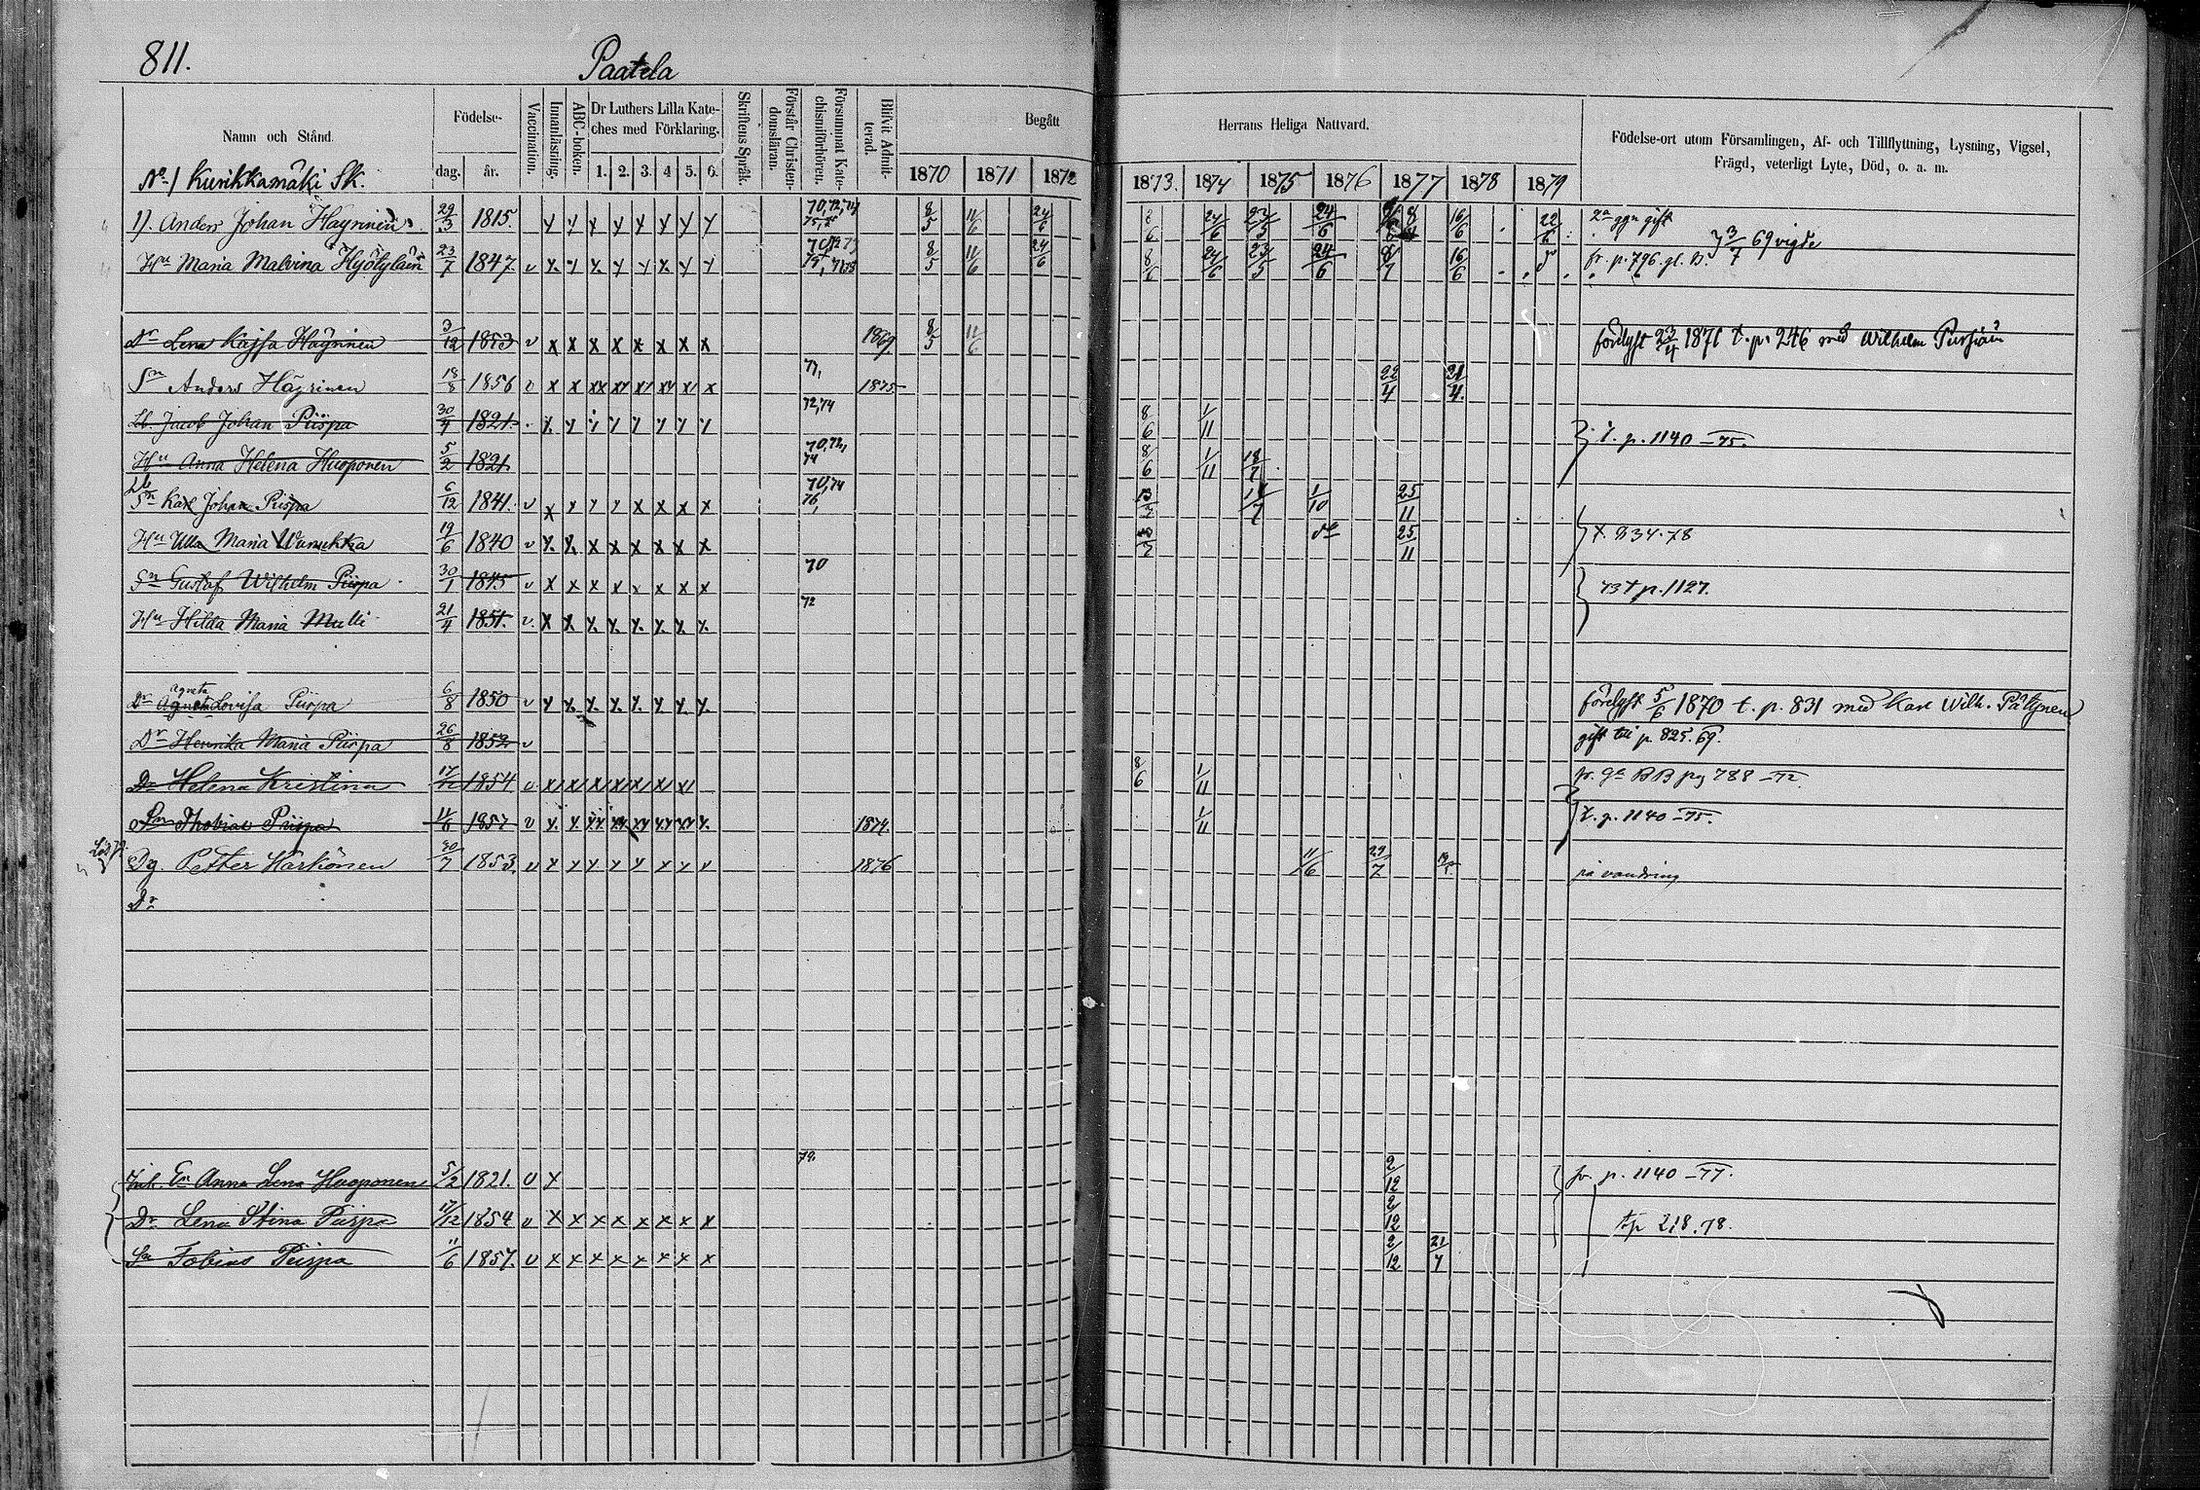 811.
Paatela
Namn och Stånd.
Födelse-
dag.
år.
Vaccination.
Innanläsning.
ABC-boken.
Dr Luthers Lilla Kate-
ches med Förklaring.
1. 2. 3. 4 5. 6.
Skriftens Språk.
Förstår Christen-
domsläran.
Försummat Kate-
chismiförhören.
Blifvit Admit-
terad.
Begått
Herrans Heliga Nattvard.
1870 1871 1872
1873. 1874 1875 1876 1877 1878 1879
Födelse-ort utom Församlingen, Af- och Tillflyttning, Lysning, Vigsel,
Frägd, veterligt Lyte, Död, o. a. m.
No 1 Kurikkamäki Sk.
1). Anders Johan Häyrinen 29/3 1815. 8/5 11/6 24/6 8/6 24/6 23/5 24/6 16/6 22/6 2a ggn gift
Hu Maria Malvina Hyötyläin 23/7 1847. v 8/5 11/6 24/6 8/6 24/6 23/5 24/6 8/7 16/6 fr. p. 796. gl. B. 3/7 69 vigde
Dr Lena Kajsa Häyrinen 3/12 1853 v x x x x x x x x 1869. 8/5 11/6 förelyst 23/4 1871 t. p. 246 med Wilhelm
Sn Anders Häyrinen 18/8 1856 v 77, 1875 22/4 21/4
Lb. Jacob Johan Piispa 30/4 1821. 72,74 8/6 1/11 t. p. 1140 -75.
Hu Anna Helena Husponen 5/2 1821 70,72, 74 8/6 1/11 18/7
Lb
Sn Karl Johan Piispa 6/12 1841. v 70,74 76, 1/10 25/11
Hu Ulla Maria 19/6 1840 v do 25/11 t. 834.78
Sn Gustaf Wilhelm Piispa 30/1 1845 v 70 73 t p. 1127.
Hu Hilda Maria Mulli 21/4 1851. v. 72
agneta
Dr Lovisa Piispa 6/8 1850 v förelyst 5/6 1870 t. p. 831 med Karl Wilh. Pättynen
Dr Henrika Maria Piispa 26/8 1852 v gift till p. 825. 69.
Dr Helena Kristina 17/12 1854 v 8/6 1/11 fr. BB pg 788 -72.
Sn Thobias Piispa 11/6 1857 v 1874. 1/11 t. p. 1140 -75.
Dg. Petter Härkönen 30/7 1853. v 1876 11/6 29/7 på vandring
Dr
Inh. En Anna Lena Husponen 5/2 1821. v x 78. 2/12 fr. p. 1140 -77.
Dr Lena Stina Piispa 17/12 1854 v x x x x x x x x 2/12 tp 218.78.
Sn Tobias Piispa 11/6 1857. v x x x x x x x x 2/12 21/4